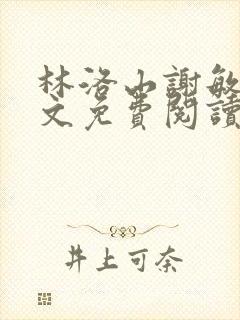 林洛山謝敏
文免費閱讀
井上可奈